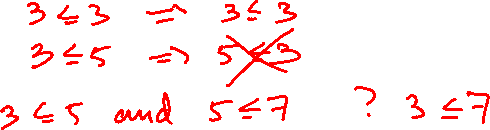 3 ≤ 3 ⇒ 3 ≤ 3
3 ≤ 5 ⇒ 5 ≤ 3
3 ≤ 5 and 5 ≤ 7 ? 3 ≤ 7